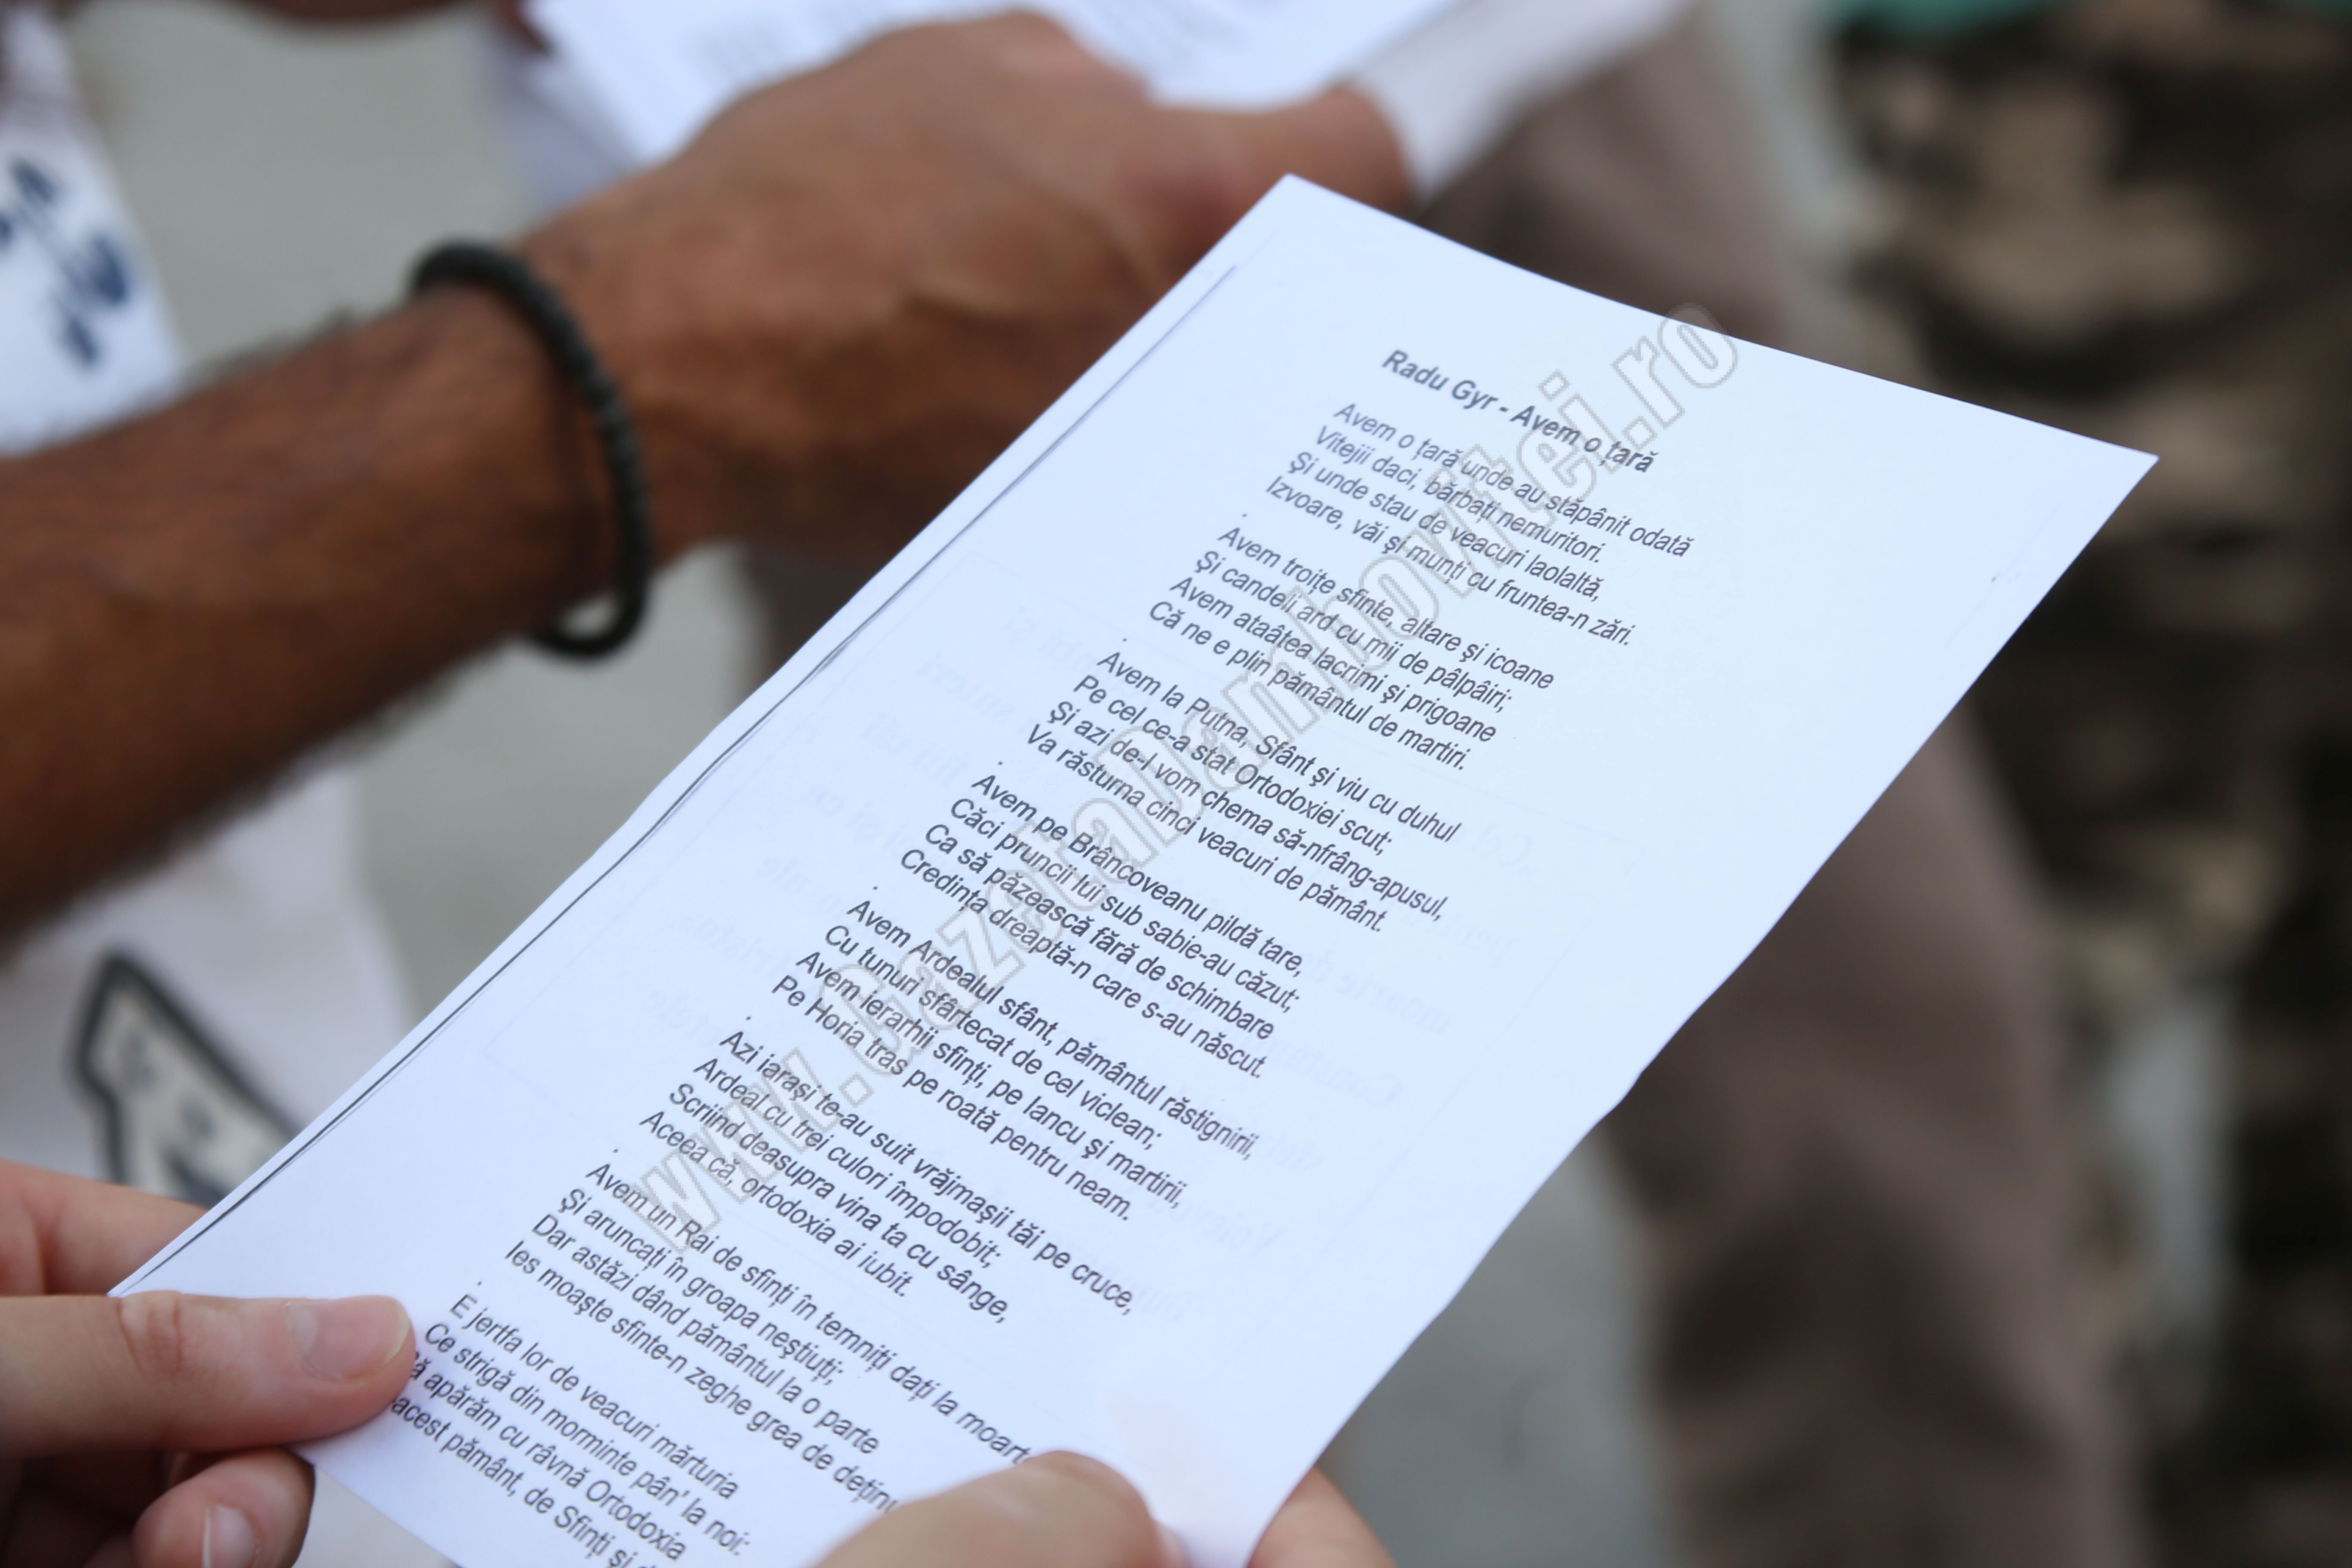 Radu Gyr - Avem o țară
Avem o țară unde au stăpânit odată
Vitejii daci, bărbați nemuritori.
Și unde stau de veacuri laolaltă,
Izvoare, văi și munți cu fruntea-n zări.
.
Avem troițe sfinte, altare și icoane
Și candeli ard cu mii de pâlpâiri;
Avem ataâtea lacrimi și prigoane
Că ne e plin pământul de martiri.
.
Avem la Putna, Sfânt și viu cu duhul
Pe cel ce-a stat Ortodoxiei scut;
Și azi de-l vom chema să-nfrâng-apusul,
Va răsturna cinci veacuri de pământ.
.
Avem pe Brâncoveanu pildă tare,
Căci pruncii lui sub sabie-au căzut;
Ca să păzească fără de schimbare
Credința dreaptă-n care s-au născut.
.
Avem Ardealul sfânt, pământul răstignirii,
Cu tunuri sfârtecat de cel viclean;
Avem ierarhii sfinți, pe Iancu și martirii,
Pe Horia tras pe roată pentru neam.
.
Azi iarași te-au suit vrăjmașii tăi pe cruce,
Ardeal cu trei culori împodobit;
Scriind deasupra vina ta cu sânge,
Aceea că, ortodoxia ai iubit.
.
Avem un Rai de sfinți în temniți dați la moarte
Și aruncați în groapa neștiuți;
Dar astăzi dând pământul la o parte
Ies moaște sfinte-n zeghe grea de deținu
.
E jertfa lor de veacuri mărturia
Ce strigă din morminte pân' la noi:
apărăm cu râvnă Ortodoxia
acest pământ, de Sfinți și
www.GazetaDambovitei.ro